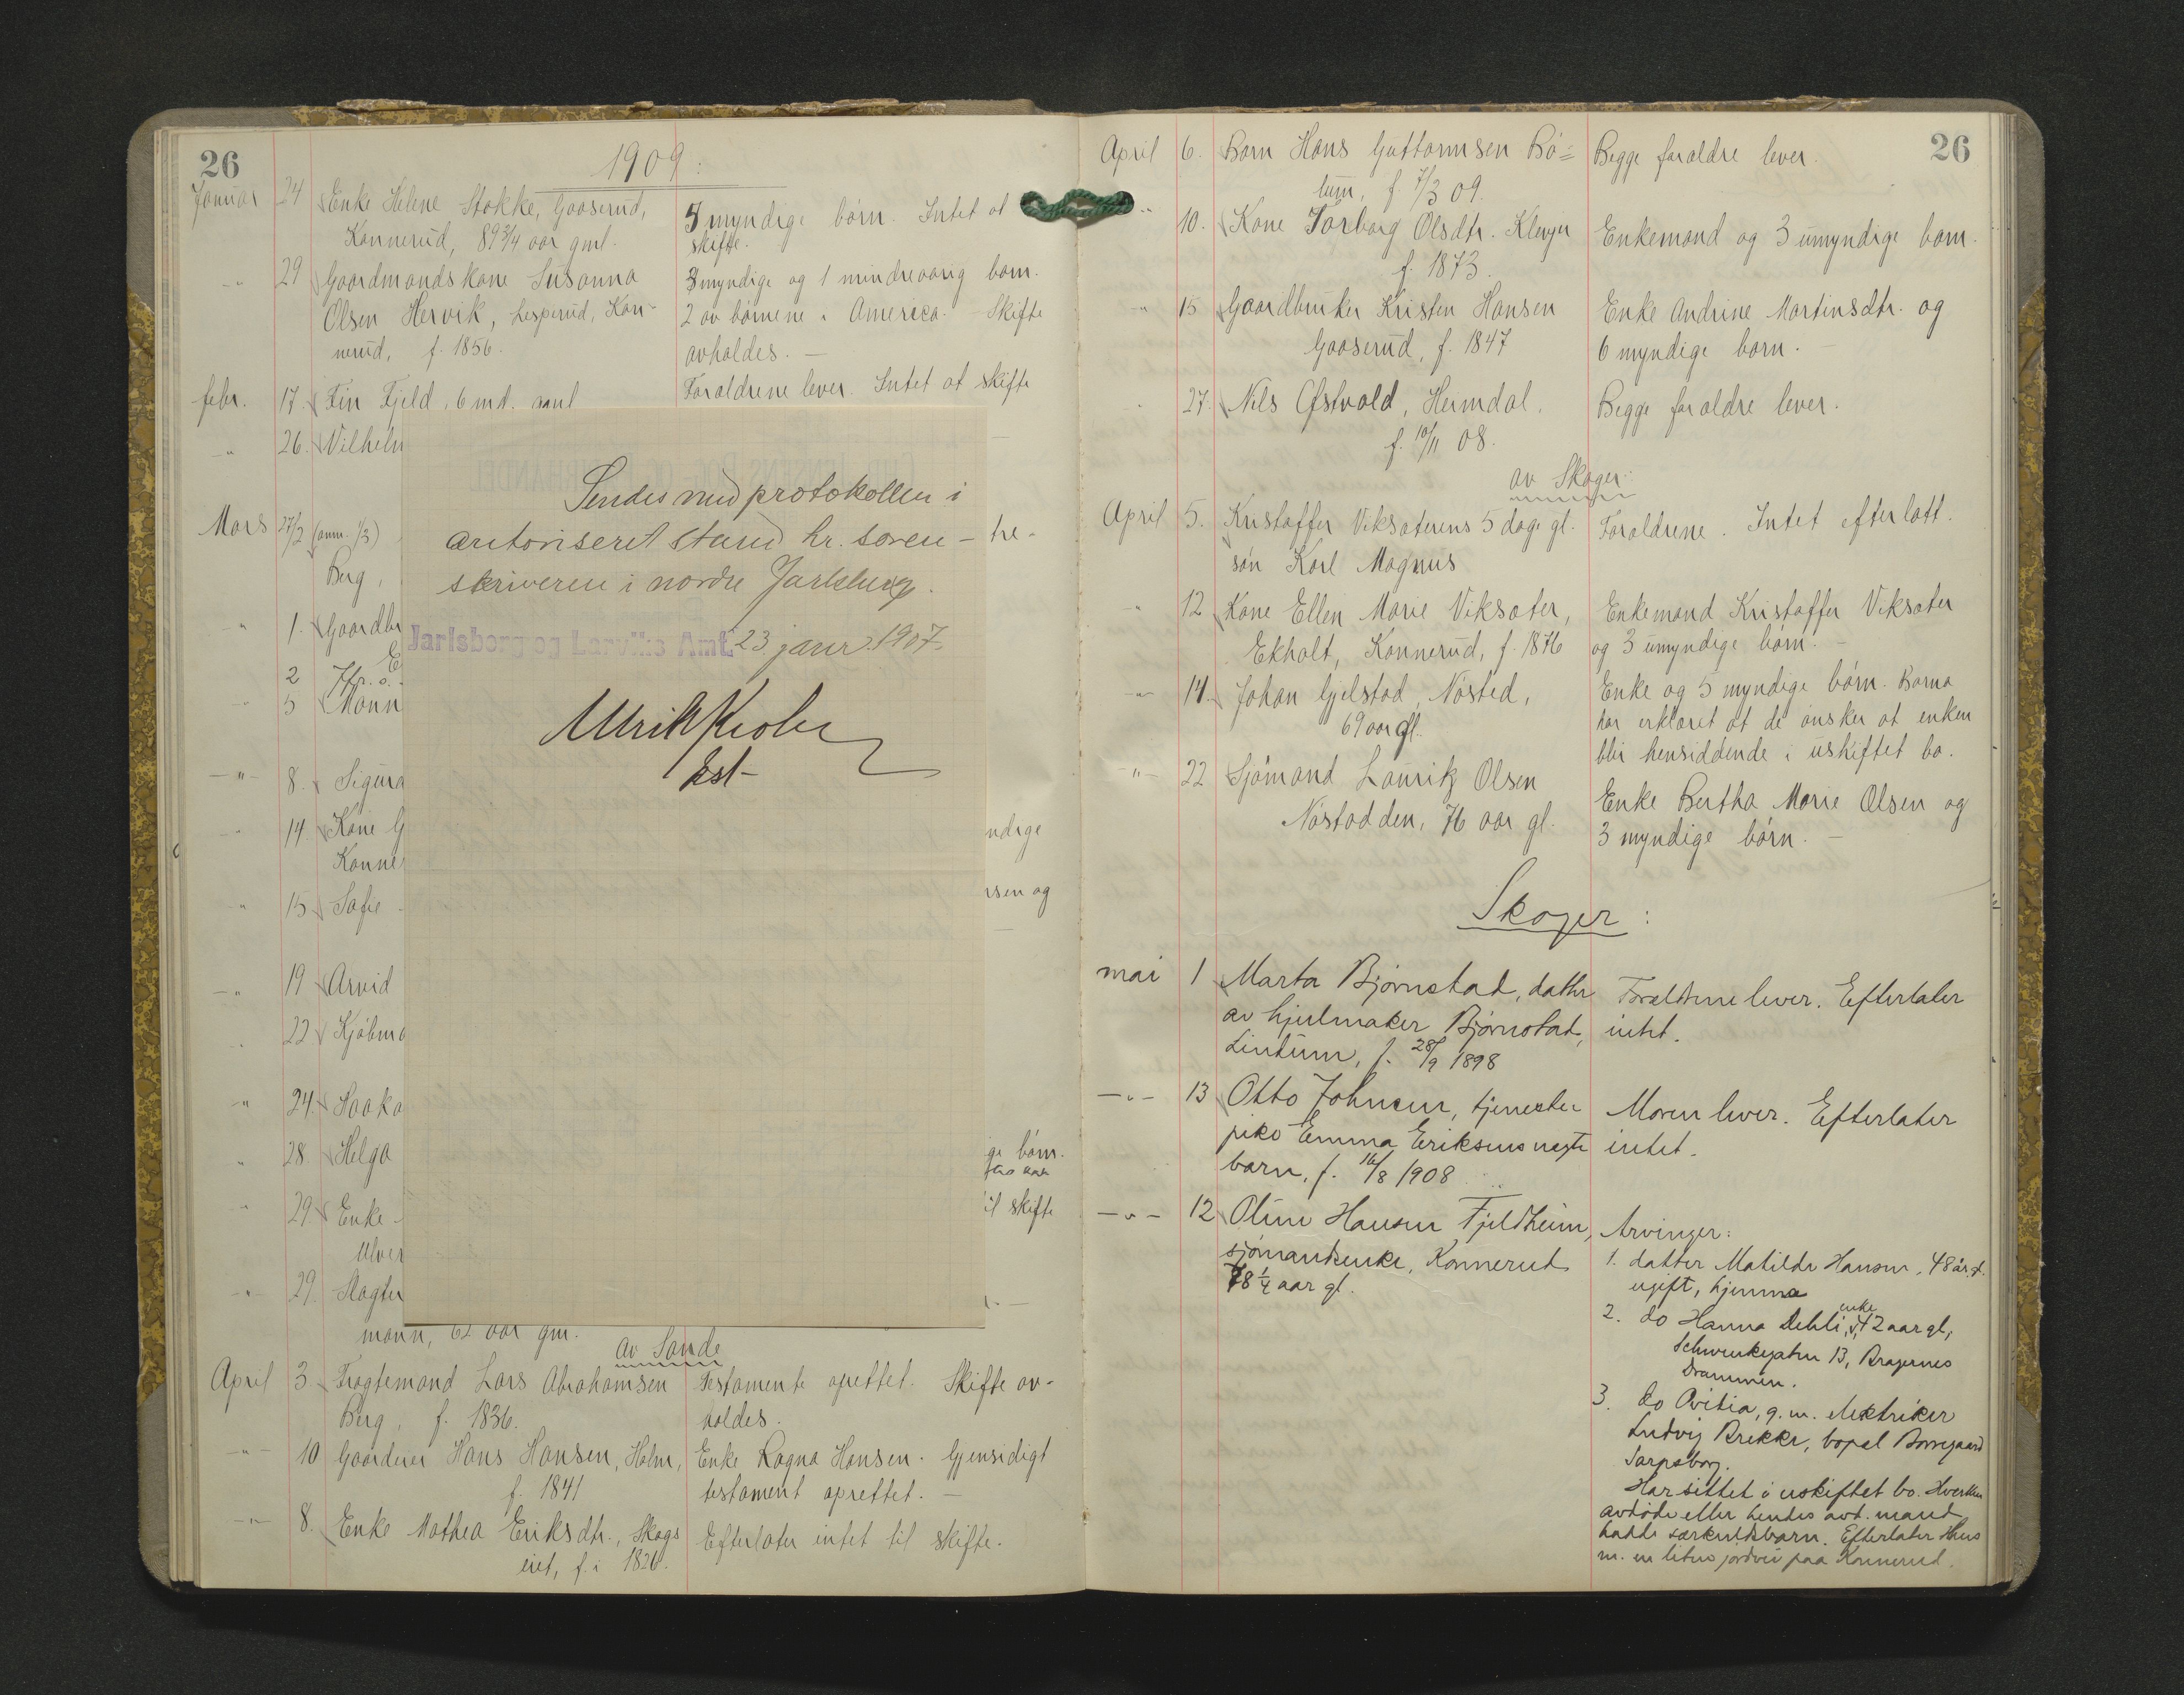 26
1909:
Januar 24 Enke Helene Stokke, Gaaserud, 5 myndige børn. Intet at
Konnerud, 89 3/4 aar gml. skifte.
-"- 29 Gaardmandskone Susanna 3 myndige og 1 mindreaarig barn.
Olsen Hervik, Lesperud, Kon- 2 av børnene i America. - Skifte
nerud, f. 1856. avholdes. -
febr. 17. Fin Fjeld, 6 md. gml Forældrene lever. Intet at skifte
-"- 26. Vilhelm
Mars 27/2 (anm. 1/3) tre-
Berg,
" 1. Gaardbr
2
-"- 5 Mann
-"- 8. Sigurd
" 14. Kone G ndige
Konne
" 15 Sofie nsen og
-"- 19 Arvid
" 22 Kjøbma
-"- 24. Haako
" 28. Helga ge børn.
" 29. Enke til skifte
Ulver
-"- 29. Slagter
mann, 62 aar gm.
av Sande
April 3. Fragtemand Lars Abrahamsen Testamente oprettet. Skifte av-
Berg, f. 1836. holdes.
-"- 10 Gaardeier Hans Hansen, Holm, Enke Ragna Hansen. Gjensidigt
f. 1841 testament oprettet. -
-"- 8. Enke Mathea Eriksdtr., Skogs Efterlater intet til skifte.
eiet, f. i 1826.
Sendes med protokollen i
autoriseret stand hr. soren-
skriveren i nordre Jarlsberg.
Jarlsberg og Larviks Amt. 23. janr. 1907.
Ulrik
kst-
26
April 6. Barn Hans Guttormsen Bø= Begge forældre lever.
tum, f. 7/3 09.
" 10. Kone Torborg Olsdtr. Klevjer Enkemand og 3 umyndige barn.
f. 1873.
-"- 15 Gaardbruker Kristen Hansen Enke Andrine Martinsdtr. og
Gaaserud, f. 1847 6 myndige barn. -
" 27. Nils Ofstvold, Heimdal, Begge forældre lever.
f. 10/11 08.
av Skoger:
April 5. Kristoffer Viksæterens 5 dage gl. Forældrene. Intet efterlatt.
søn Karl Magnus
" 12 Kone Ellen Marie Viksæter, Enkemand Kristoffer Viksæter
Ekholt, Konnerud, f. 1876 og 3 umyndige børn. -
-"- 14. Johan Gjelstad, Nøsted, Enke og 5 myndige børn. Barna
69 aar gl. har erklæret at de ønsker at enken
blir hensiddende i uskiftet bo.
-"- 22 Sjømand Lauritz Olsen Enke Bertha Marie Olsen og
Nøstodden, 76 aar gl. 3 myndige børn. -
Skoger:
mai 1 Marta Bjørnstad, datter Forældrene lever. Efterlater
av hjulmaker Bjørnstad, intet.
Lintum, f. 28/9 1898
-"- 13 Otto Johnsen, tjeneste- Moren lever. Efterlater
pike Emma Eriksens uegte intet.
barn, f. 16/8 1908
-"- 12 Oline Hansen Fjeldheim, Arvinger:
sjømandsenke, Konnerud 1. datter Matilde Hansen, 48 år gl.
78 1/4 aar gl. ugift, hjemme
2. do Hanna Dehli, enke, 42 aar gl,
Schwenkegaten 13, Bragernes
Drammen.
3. do Ovitia, g. m. elektriker
Ludvig Brekke, bopæl Borregaard
Sarpsborg.
Har sittet i uskiftet bo. Hverken
avdøde eller hendes avd. mand
hadde særkuldsbarn. Efterlater Hus
m. en liten jordvei paa Konnerud.